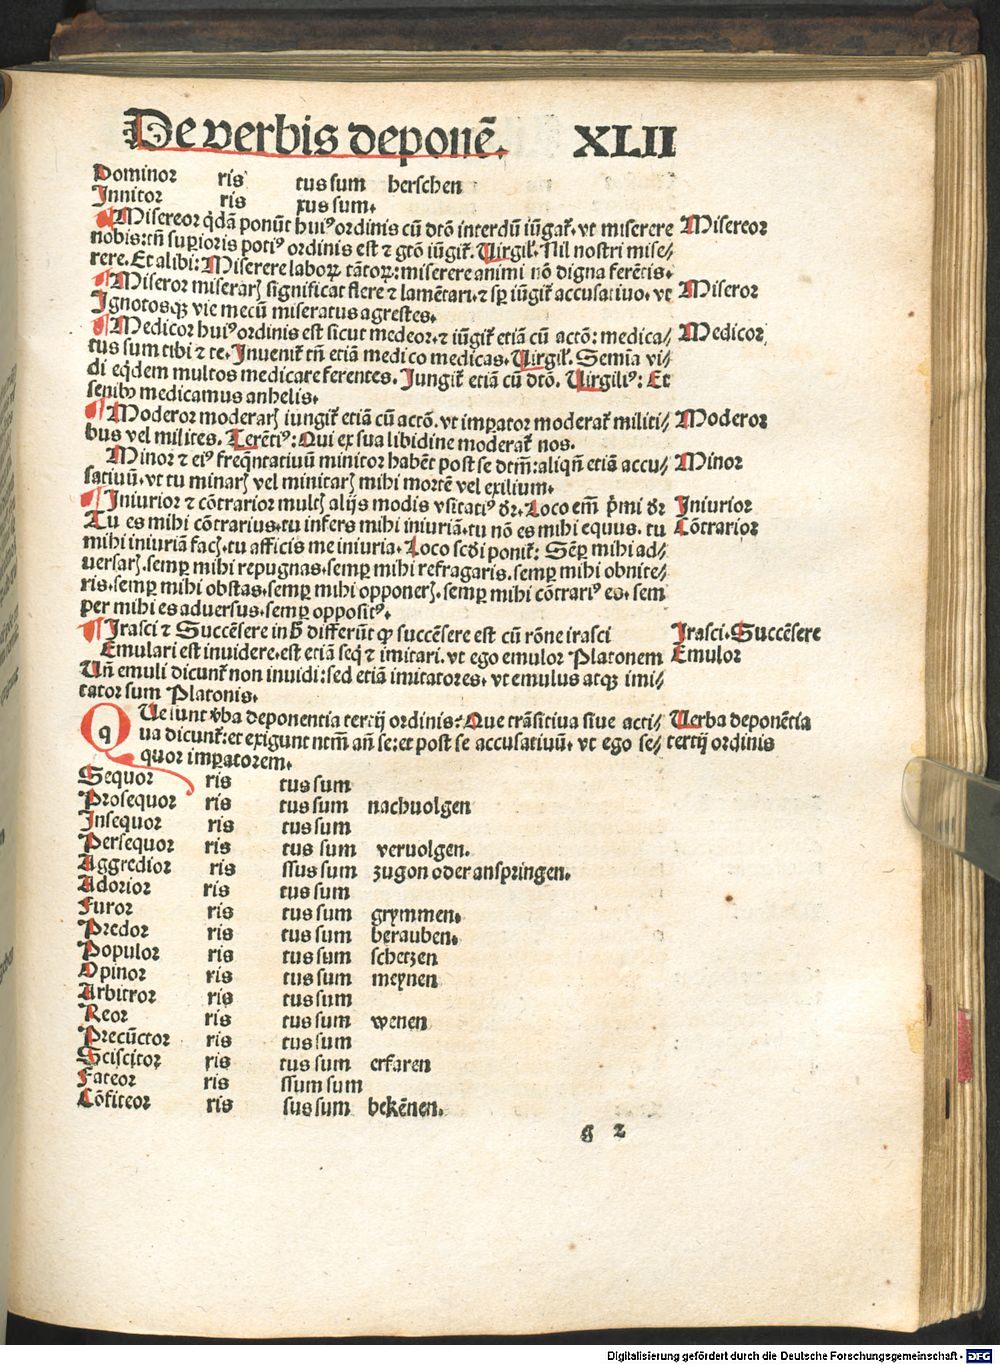 De verbis deponē. XLII
Dominor ris tus sum herschen
Innitor ris xus sum.
Misereor q̄dā ponūt huiꝰ ordinis cū dtō interdū iūgaƭ. vt miserere Misereor
nobis: tñ superioris potiꝰ ordinis est ⁊ gtō iūgiƭ. Virgil. Nil nostri mise⸗
rere. Et alibi: Miserere laborꝝ tātorꝝ: miserere animi nō digna ferētis.
Miseror miserarꝭ significat flere ⁊ lamētari. ⁊ sꝑ iūgiƭ accusatiuo. vt Miseror
Ignotosqꝫ vie mecū miseratus agrestes.
Medicor huiꝰ ordinis est sicut medeor. ⁊ iūgiƭ etiā cū actō: medica⸗ Medicor
tus sum tibi ⁊ te. Inueniƭ tñ etiā medico medicas. Virgil. Semīa vi⸗
di eq̇dem multos medicare ferentes. Jungiƭ etiā cū dtō. Virgiliꝰ: Et
senibꝰ medicamus anhelis.
Moderor moderarꝭ iungiƭ etiā cū actō. vt imꝑator moderaƭ militi⸗ Moderor
bus vel milites. Terētiꝰ: Qui ex sua libidine moderaƭ nos.
Minor ⁊ eiꝰ freq̄ntatiuū minitor habēt post se dtm̄: aliqñ etiā accu⸗ Minor
satiuū. vt tu minarꝭ vel minitarꝭ mihi mortē vel exilium.
Iniurior ⁊ cōtrarior multꝭ alijs modis vsitatiꝰ dr̄. Loco em̄ p̄mi dr̄ Iniurior
Tu es mihi cōtrarius. tu infers mihi iniuriā. tu nō es mihi equus. tu Cōtrarior
mihi iniuriā facꝭ. tu afficis me iniuria. Loco scd̄i poniƭ: Sēꝑ mihi ad⸗
uersarꝭ. semꝑ mihi repugnas. semꝑ mihi refragaris. semꝑ mihi obnite⸗
ris. semꝑ mihi obstas. semꝑ mihi opponerꝭ. semꝑ mihi cōtrariꝰ es. sem
per mihi es aduersus. semꝑ oppositꝰ.
Irasci ⁊ Succēsere in h̄ differūt ꝙ succēsere est cū rōne irasci Irasci. Succēsere
Emulari est inuidere. est etiā seq̇ ⁊ imitari. vt ego emulor Platonem Emulor
Vñ emuli dicunƭ non inuidi: sed etiā imitatores. vt emulus atqꝫ imi⸗
tator sum Platonis.
Que sunt v̄ba deponentia tertij ordinis: Que trāsitiua siue acti⸗ Verba deponētia
ua dicunƭ: et exigunt ntm̄ añ se: et post se accusatiuū. vt ego se⸗ tertij ordinis
quor imꝑatorem.
Sequor ris tus sum
Prosequor ris tus sum nachuolgen
Insequor ris tus sum
Persequor ris tus sum veruolgen.
Aggredior ris ssus sum zugon oder anspringen.
Adorior ris tus sum
Furor ris tus sum grymmen.
Predor ris tus sum berauben.
Populor ris tus sum schetzen
Opinor ris tus sum meynen
Arbitror ris tus sum
Reor ris tus sum wenen
Precūctor ris tus sum
Sciscitor ris tus sum erfaren
Fateor ris ssum sum
Cōfiteor ris sus sum bekēnen.
g 2
Digitalisierung gefördert durch die Deutsche Forschungsgemeinschaft - DFG